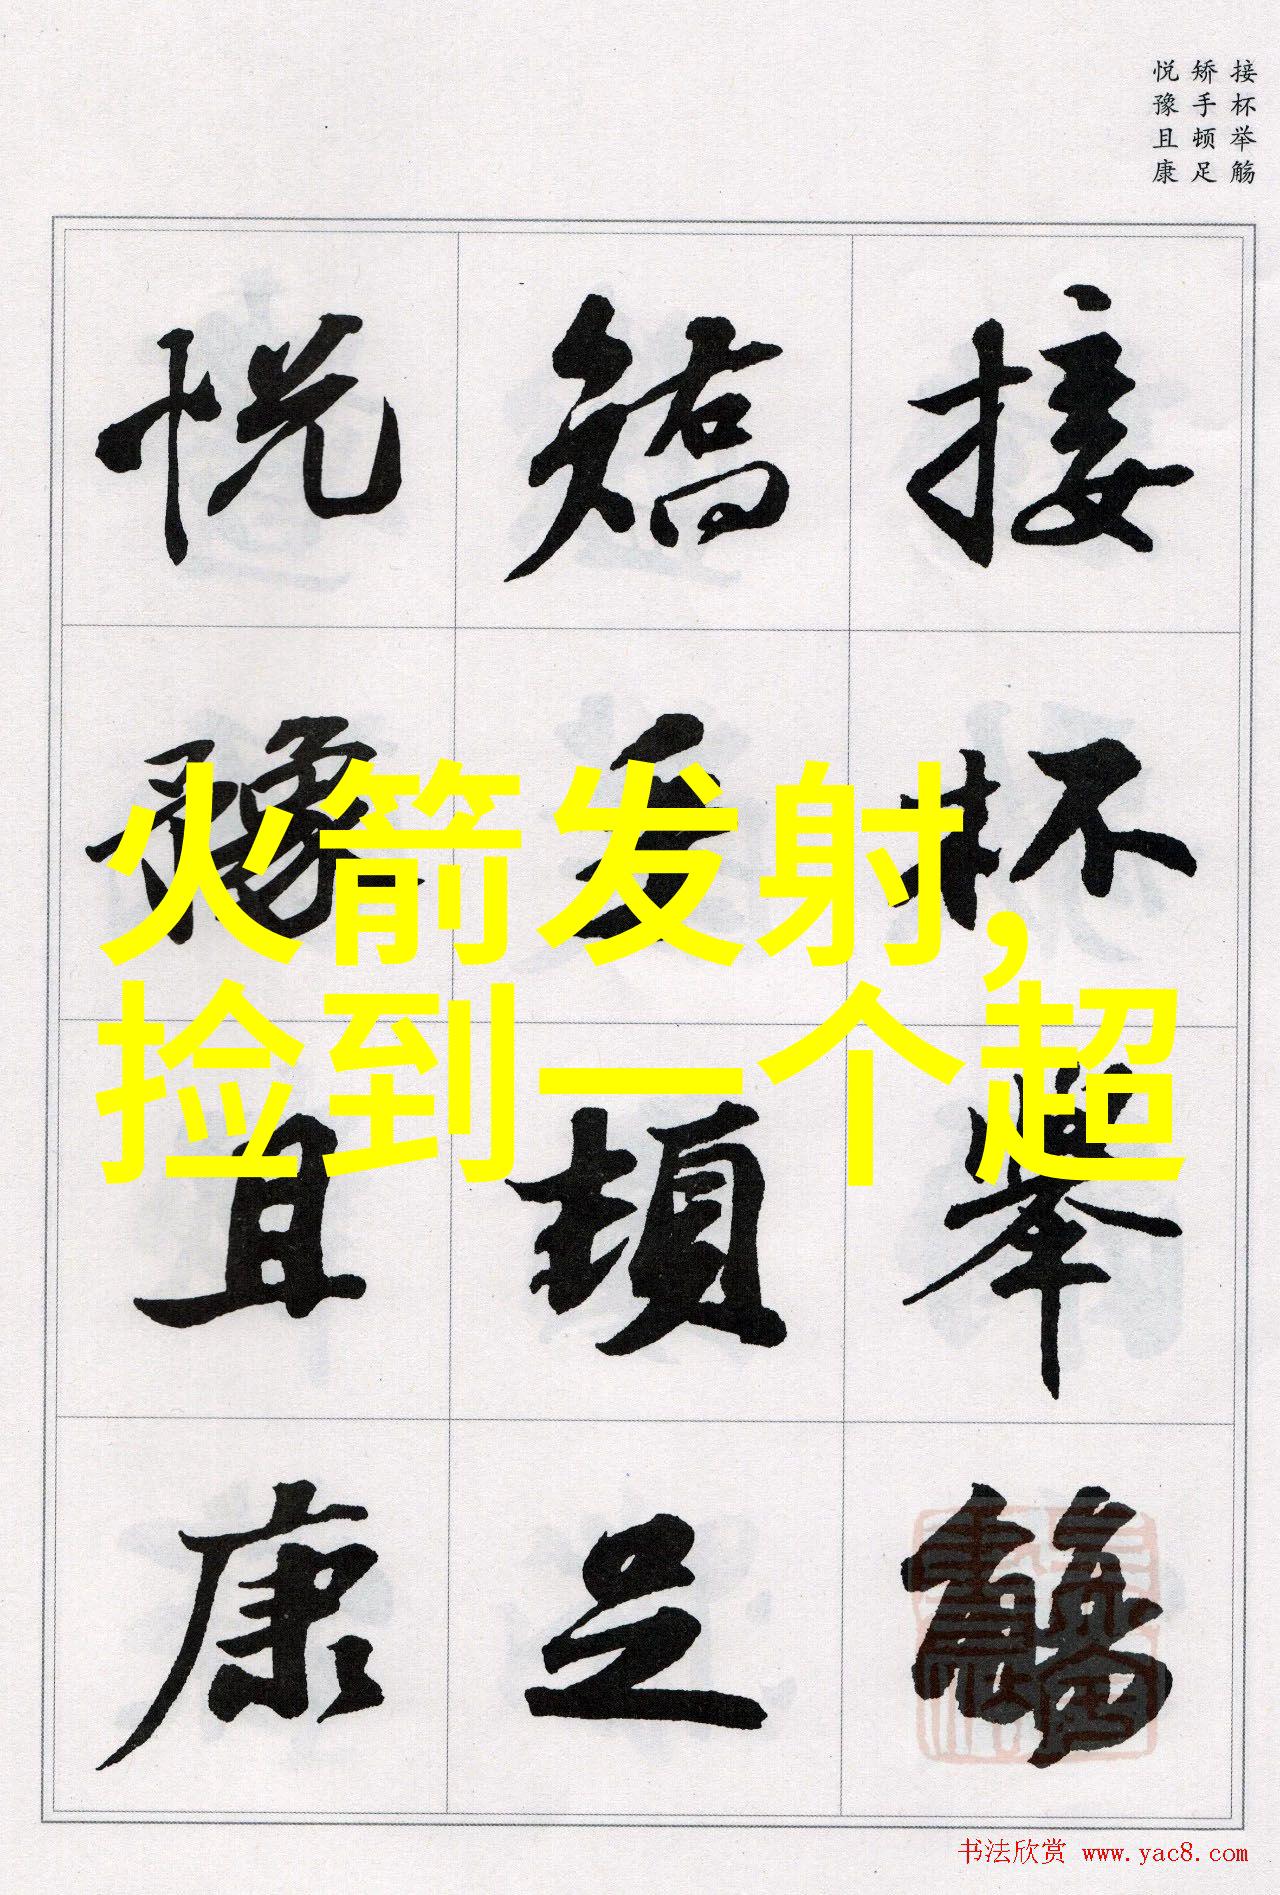 接杯举觞
矫手顿足
悦豫且康
接杯舉觴
矯手頓足
悦豫且康
火箭发射,
捡到一个超
书法欣赏 www.yac8.com